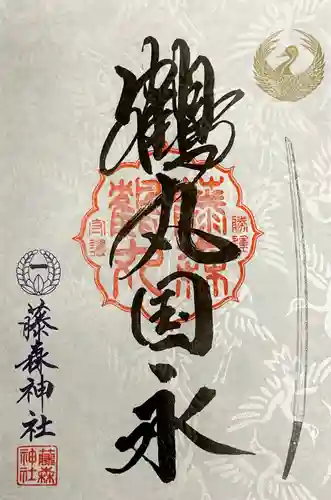 鶴丸国永
藤森
鶴丸
勝運
一
藤森神社
藤森
神社